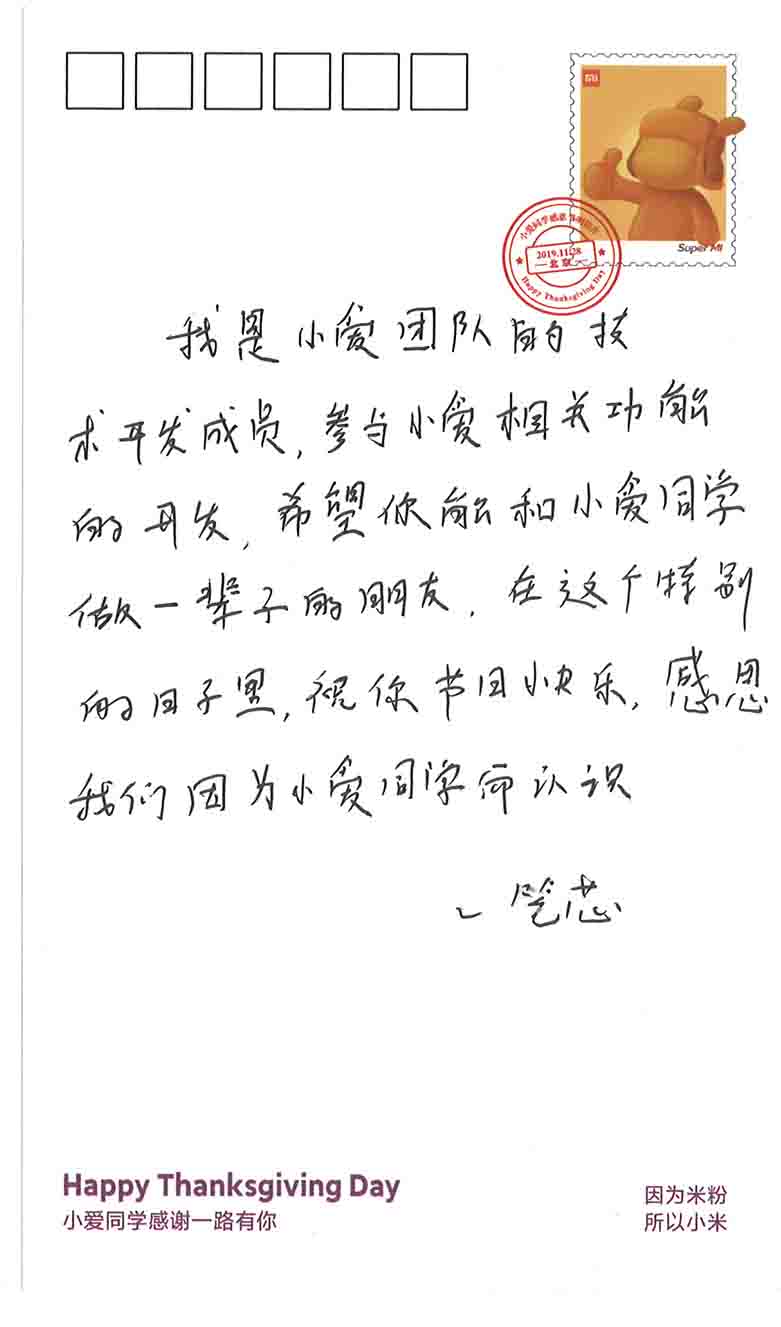 Mi
Super Mi
小爱同学感恩
2019.11.28
北京
Happy Thanksgiving Day
我是小爱团队的技
术开发成员，参与小爱相关功能
的开发，希望你能和小爱同学
做一辈子的朋友．在这个特别
的日子里，祝你节日快乐，感恩
我们因为小爱同学而认识
笔芯
Happy Thanksgiving Day
小爱同学感谢一路有你
因为米粉
所以小米